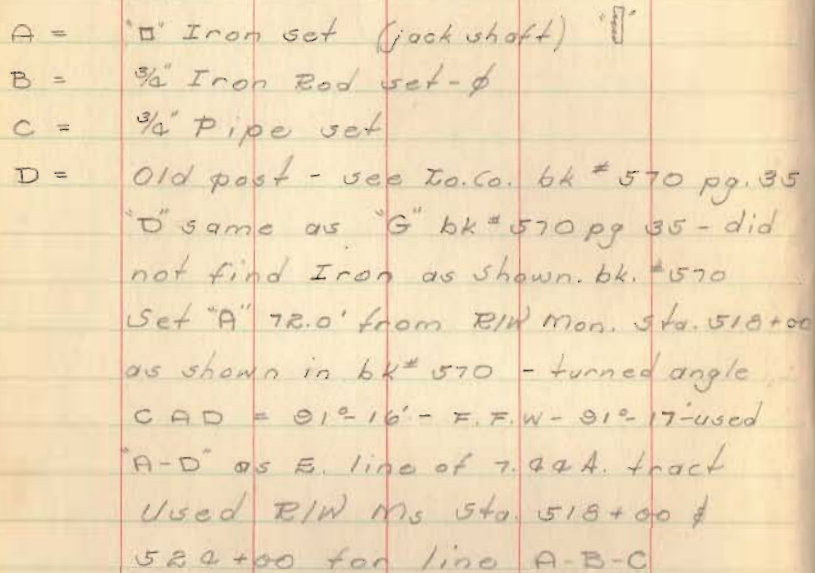 A = "□" Iron set (jack shaft) "▯"
B = 3/4" Iron Rod set - ¢
C = 3/4" Pipe set
D = Old post - see Lo. Co. bk # 570 pg. 35
"D" same as "G" bk # 570 pg 35 - did
not find Iron as shown. bk. # 570
Set "A" 72.0' from R/W Mon. Sta. 518+00
as shown in bk # 570 - turned angle
CAD = 91°-16' - F.F.W - 91°-17' - used
"A-D" as E. line of 7.44A. tract
Used R/W Ms Sta. 518+00 &
524+00 for line A-B-C